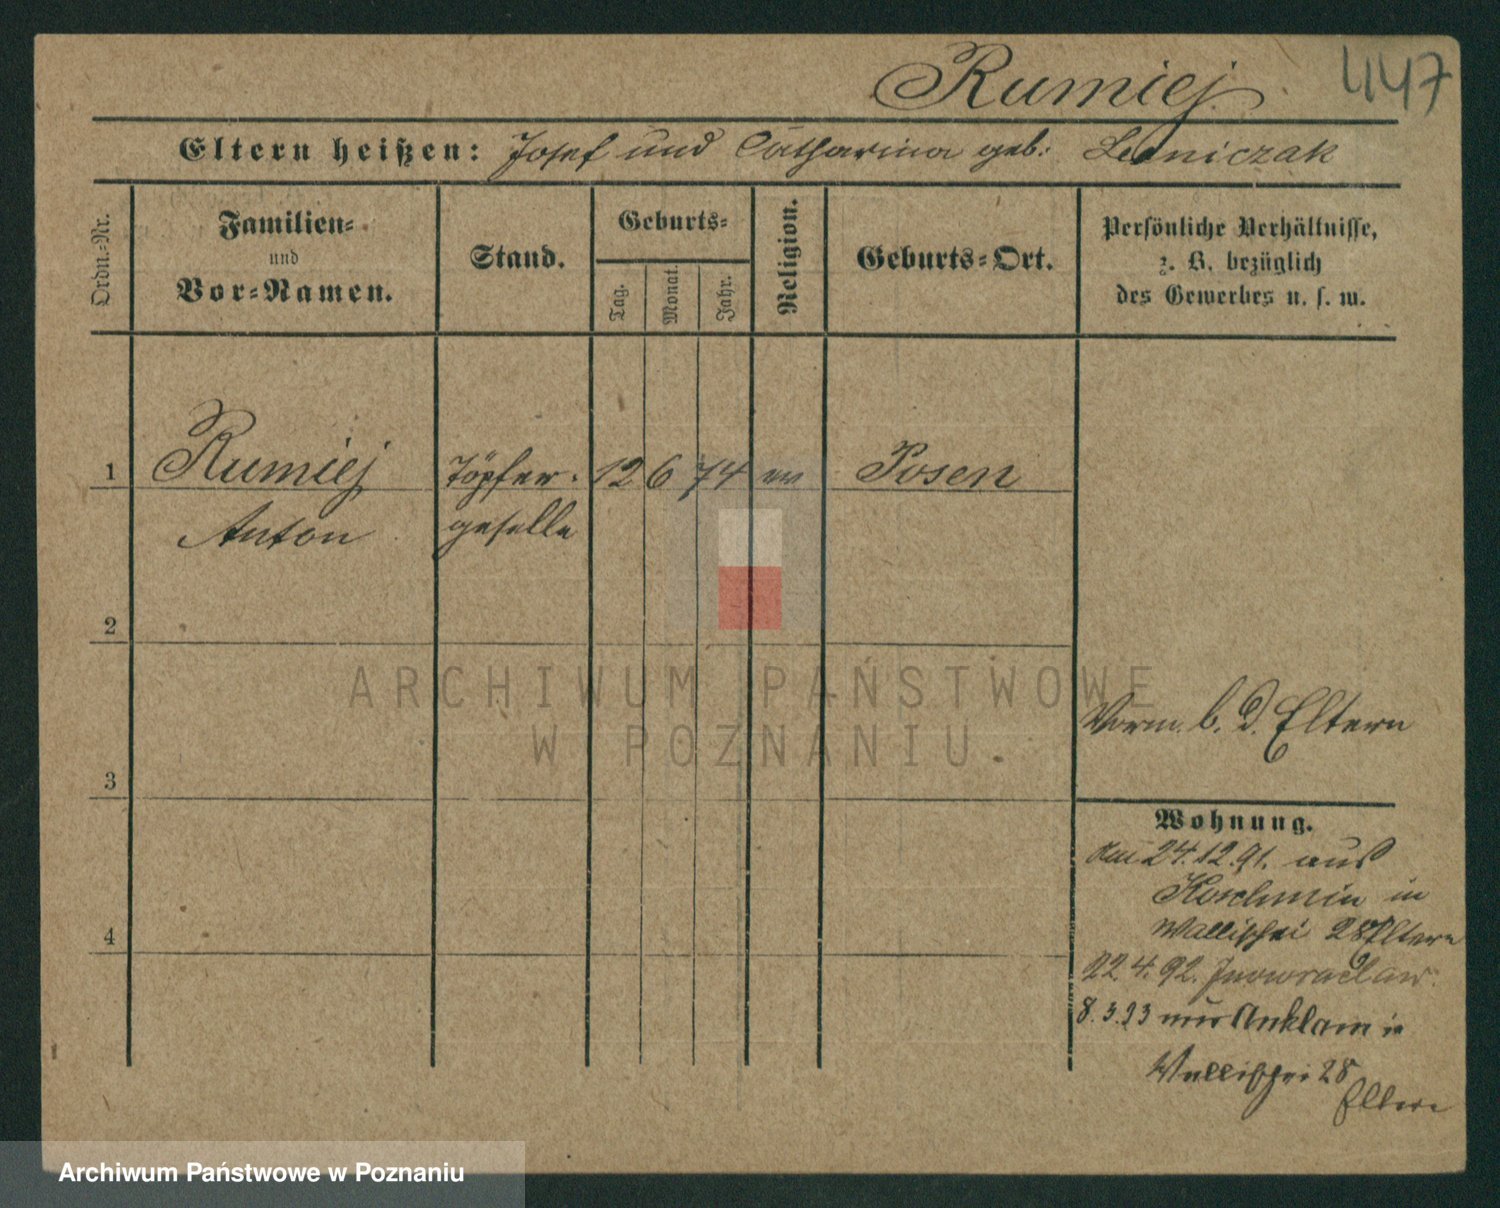 Rumiej 447
Eltern heißen: Josef und Catharina geb:
Ordn.-Nr.
Familien-
und
Vor-Namen.
Stand.
Geburts-
Tag.
Monat.
Jahr.
Religion.
Geburts-Ort.
Persönliche Verhältnisse,
z. B. bezüglich
des Gewerbes u. s. w.
1 Rumiej Töpfer- 12 6 74 Posen
Anton geselle
2
ARCHIWUM PAŃSTWOWE
W POZNANIU.
Vorm. b. d. Eltern
3
Wohnung.
24.12.91. aus
Koschmin in
Wallischei 28 Eltern
4
22.4.92. Inowraclaw.
8.3.93 Anklam in
Wallischei 28
Eltern
Archiwum Państwowe w Poznaniu